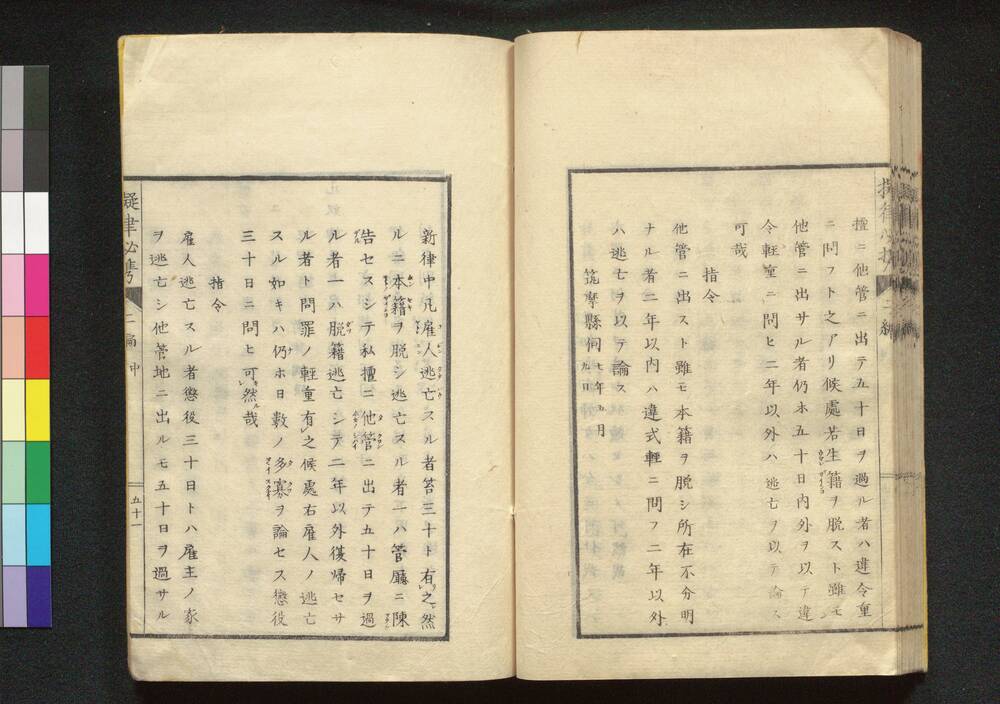 擅ニ他管ニ出テ五十日ヲ過ル者ハ違令重
ニ問フト之アリ候處若生籍ヲ脱スト雖モ
他管ニ出サル者仍ホ五十日內外ヲ以テ違
令輕重ニ問ヒ二年以外ハ逃亡ヲ以テ論ス
可哉
指令
他管ニ出スト雖モ本籍ヲ脱シ所在不分明
ナル者二年以內ハ違式輕ニ問フ二年以外
ハ逃亡ヲ以テ論ス
筑摩縣伺 七年五月九日
二編
新律中凡雇人逃亡スル者笞三十ト有之然
ルニ本籍ヲ脱シ逃亡スル者一ハ管廳ニ陳
告セスシテ私擅ニ他管ニ出テ五十日ヲ過
ル者一ハ脱籍逃亡シテ二年以外復帰セサ
ル者ト問罪ノ輕重有之候處右雇人ノ逃亡
スル如キハ仍ホ日數ノ多寡ヲ論セス懲役
三十日ニ問ヒ可然哉
指令
雇人逃亡スル者懲役三十日トハ雇主ノ家
ヲ逃亡シ他管地ニ出ルモ五十日ヲ過サル
擬律必携 二編 中 五十一